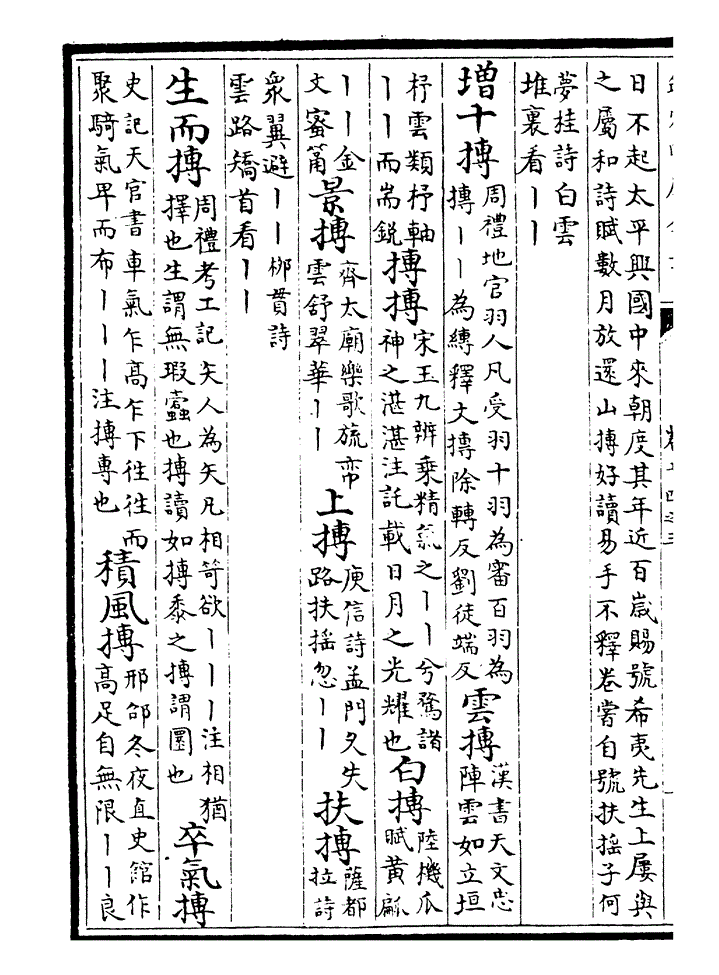 日不起太平興國中來朝度其年近百歲賜號希夷先生上屢與
之屬和詩賦數月放還山摶好讀易手不釋卷嘗自號扶搖子何
夢桂詩白雲
堆裏看丨丨
增十摶
周禮地官羽人凡受羽十羽為審百羽為
摶丨丨為縛釋文摶除轉反劉徒端反
雲摶
漢書天文志
陣雲如立垣
杼雲類杼軸
丨丨而耑銳
摶摶
宋玉九辨乘精氣之丨丨兮騖諸
神之湛湛注託載日月之光耀也
白摶
陸機瓜
賦黃㼐
丨丨金
文蜜筩
景摶
齊太廟樂歌旒帟
雲舒翠華丨丨
上摶
庾信詩孟門久失
路扶搖忽丨丨
扶摶
薩都
拉詩
衆翼避丨丨栁貫詩
雲路矯首看丨丨
生而摶
周禮考工記矢人為矢凡相笴欲丨丨丨注相猶
擇也生謂無瑕蠹也摶讀如摶黍之摶謂圜也
卒氣摶
史記天官書車氣乍高乍下徃徃而
聚騎氣卑而布丨丨丨注摶專也
積風摶
邢邵冬夜直史館作
高足自無限丨丨良